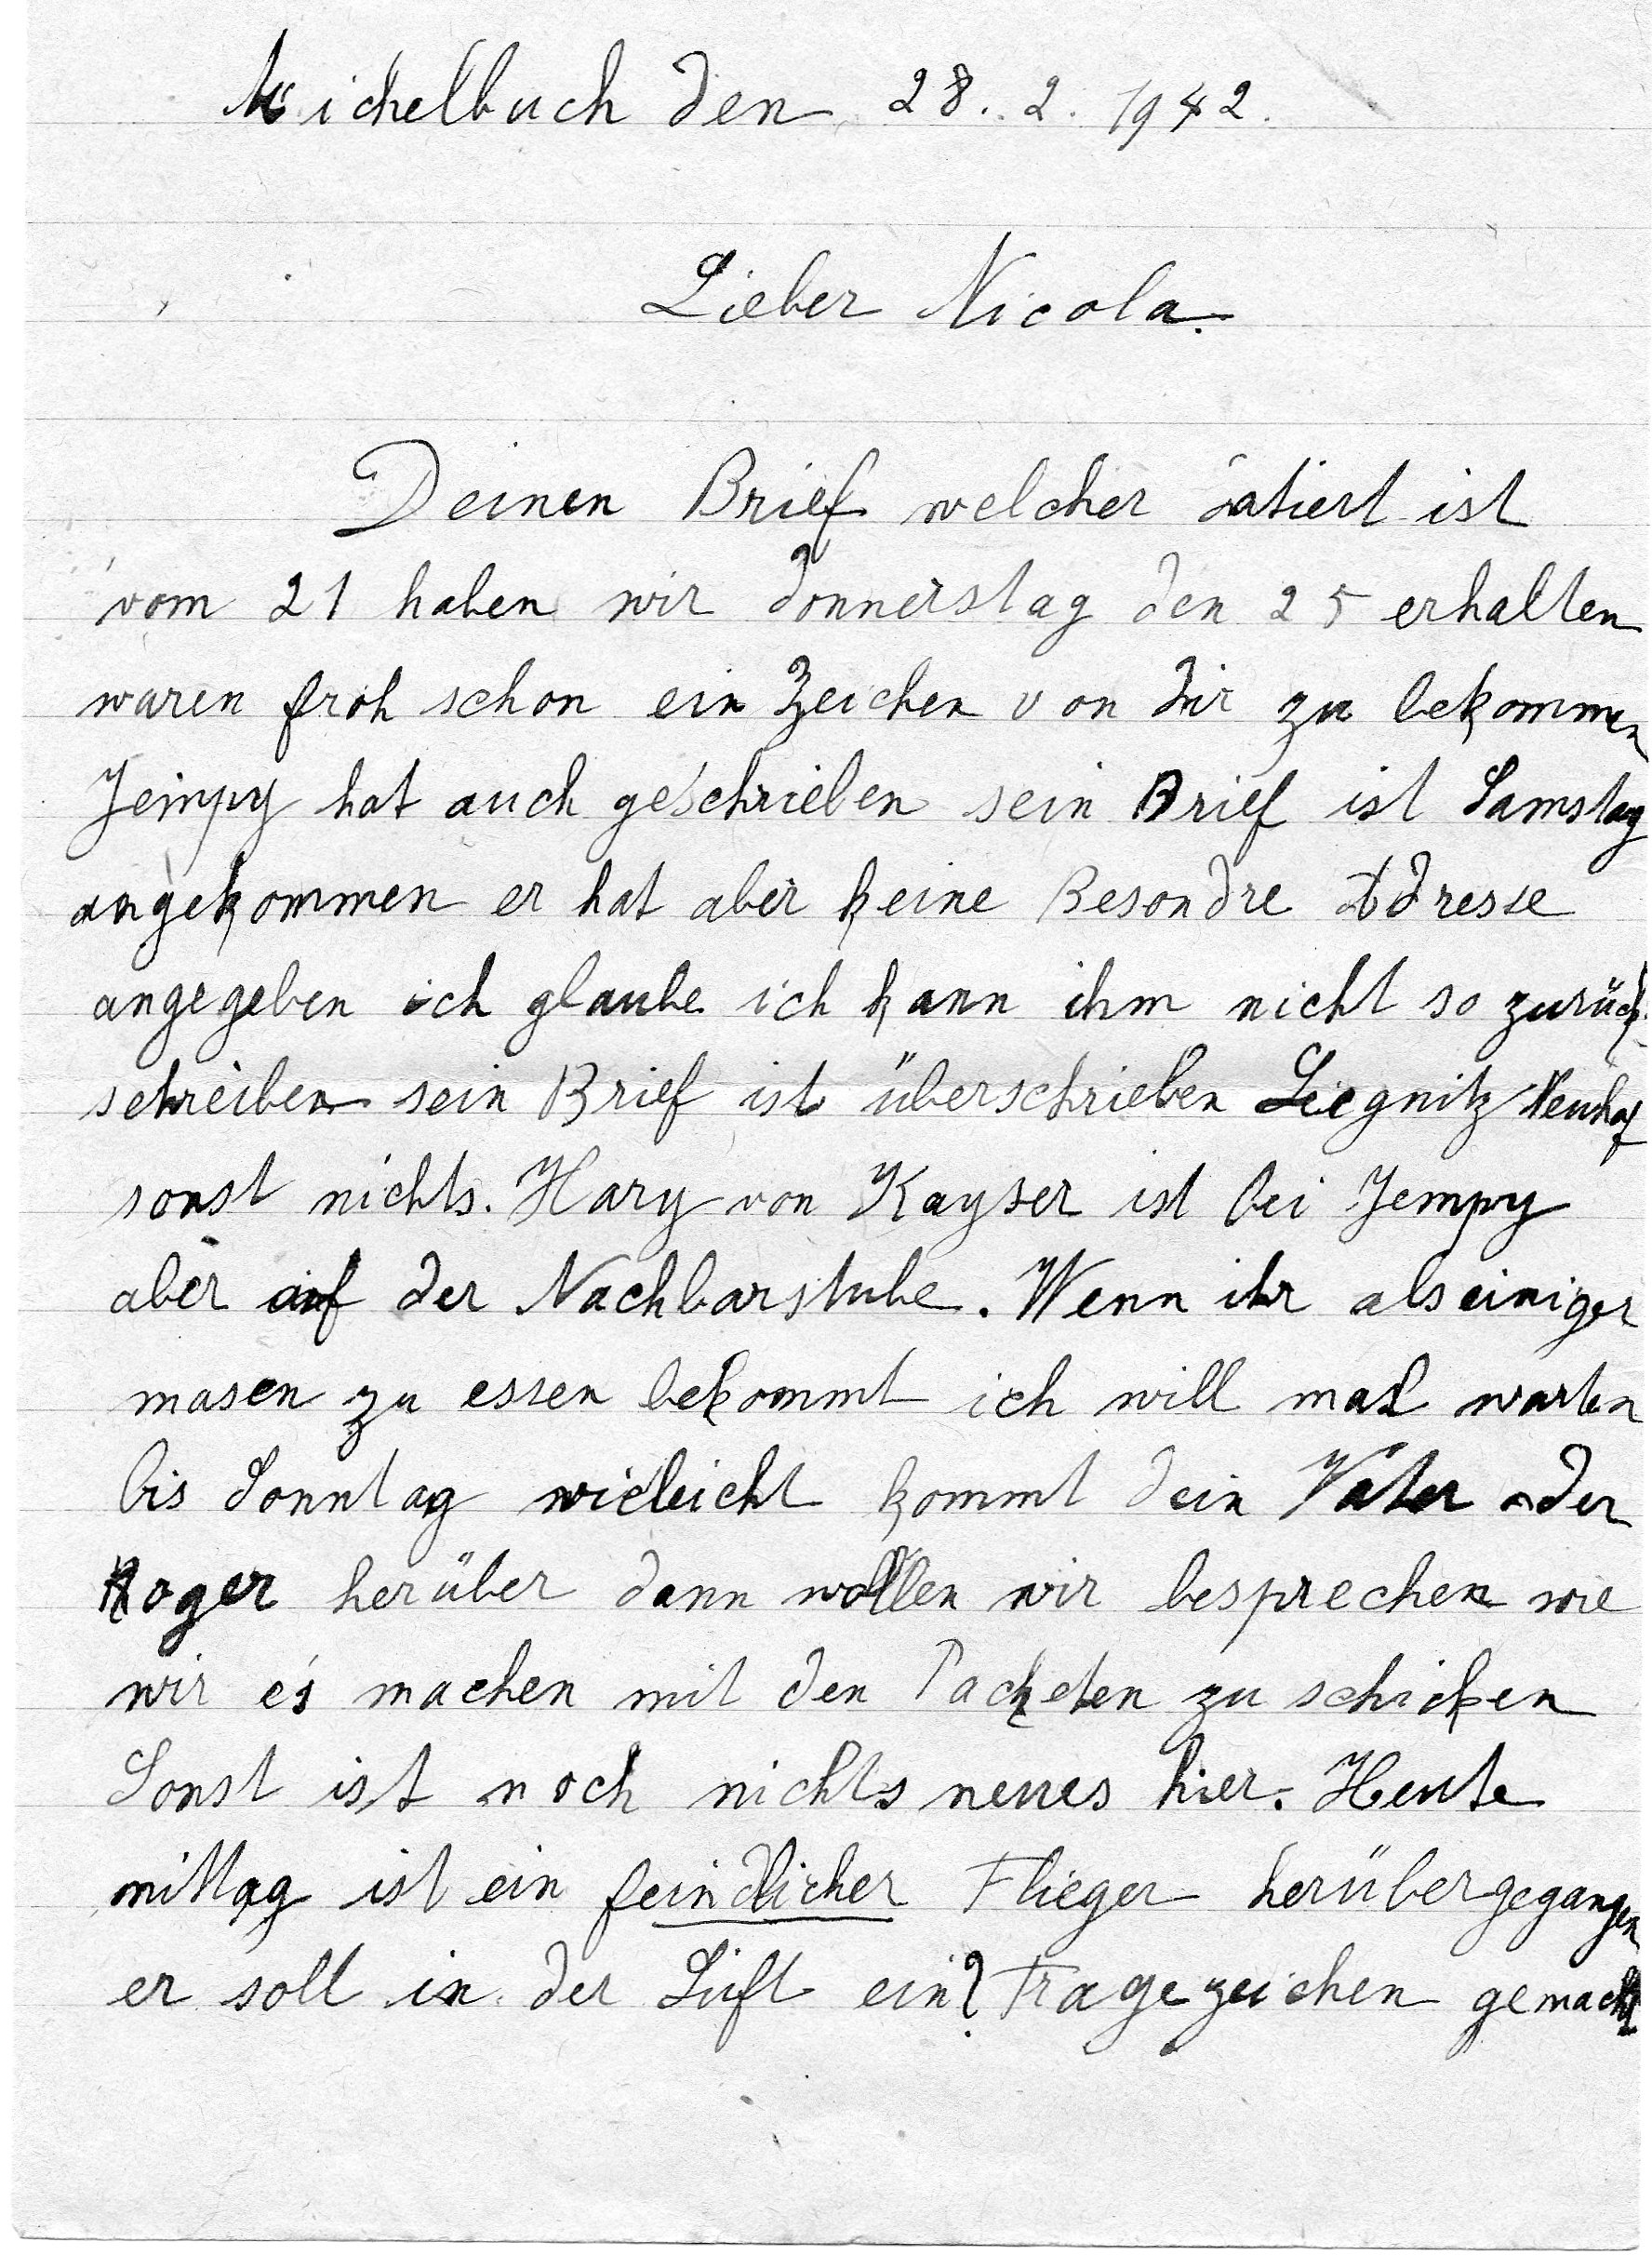 Michelbuch den 28. 2. 1942.
Lieber Nicola.
Deinen Brief welcher datiert ist
vom 21 haben wir donnerstag den 25 erhalten
waren froh schon ein Zeichen von dir zu bekommen
Jeimpy hat auch geschrieben sein Brief ist Samstag
angekommen er hat aber keine Besondre Adresse
angegeben ich glaube ich kann ihm nicht so zurück
schreiben sein Brief ist überschrieben Liegnitz Neuhof
sonst nichts. Hary von Kayser ist bei Jempy
aber auf der Nachbarstube. Wenn ihr als einiger
masen zu essen bekommt ich will mal warten
bis Sonntag wieleicht kommt dein Vater oder
Roger herüber dann wollen wir besprechen wie
wir es machen mit den Packeten zu schicken
Sonst ist noch nichts neues hier. Heute
mittag ist ein feindlicher Flieger herübergegangen
er soll in der Luft ein ? Fragezeichen gemacht